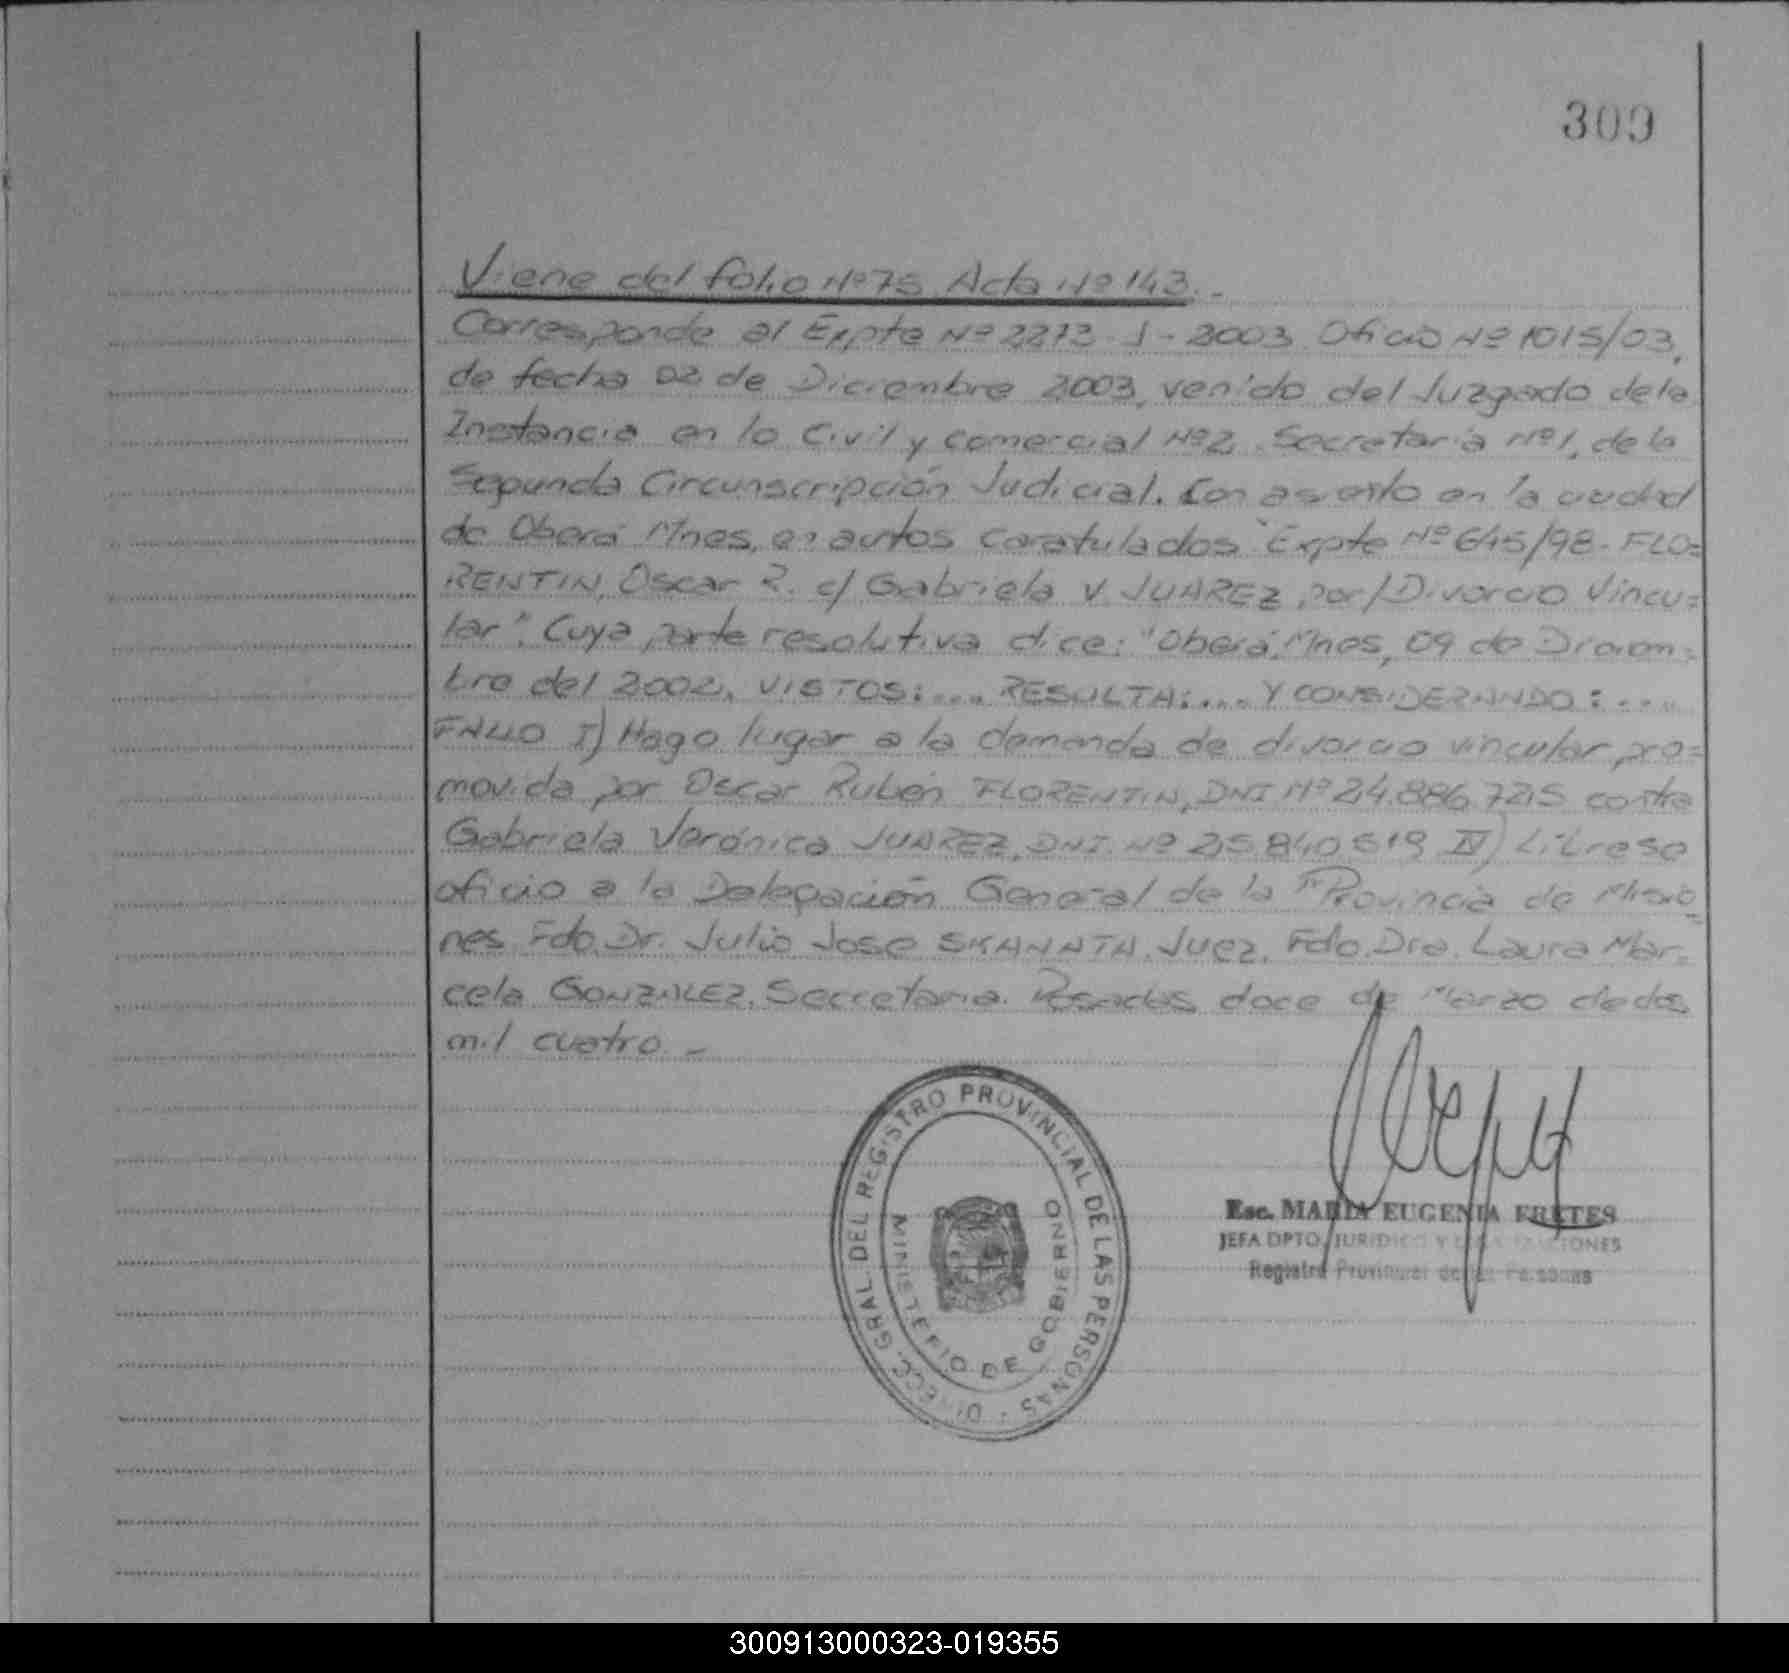 309
Viene del folio Nº 75 Acta Nº 143.-
Corresponde al Expte Nº 2273-J-2003 Oficio Nº 1015/03,
de fecha 02 de Diciembre 2003, venido del Juzgado de 1a
Instancia en lo Civil y Comercial Nº 2 Secretaría Nº 1, de la
Segunda Circunscripción Judicial. Con asiento en la ciudad
de Oberá Mnes, en autos caratulados "Expte Nº 645/98- FLO=
RENTIN, Oscar R. c/ Gabriela V. JUAREZ por/Divorcio Vincu=
lar". Cuya parte resolutiva dice: "Oberá, Mnes, 09 de Diciem=
bre del 2002. VISTOS:.... RESULTA:.... Y CONSIDERANDO:....
FALLO I) Hago lugar a la demanda de divorcio vincular pro=
movida por Oscar Rubén FLORENTIN, DNI Nº 24.886.725 contra
Gabriela Verónica JUAREZ, DNI. Nº 25.840.519 IV) Líbrese
oficio a la Delegación General de la Provincia de Misio-
nes. Fdo. Dr. Julio Jose SKANATA. Juez. Fdo. Dra. Laura Mar=
cela GONZALEZ. Secretaria. Posadas doce de Marzo de dos
mil cuatro.-
DIRECC. GRAL. DEL REGISTRO PROVINCIAL DE LAS PERSONAS -
MINISTERIO DE GOBIERNO
Esc. MARIA EUGENIA FRETES
JEFA DPTO. JURIDICO Y
Registro Provincial de las Personas
300913000323-019355